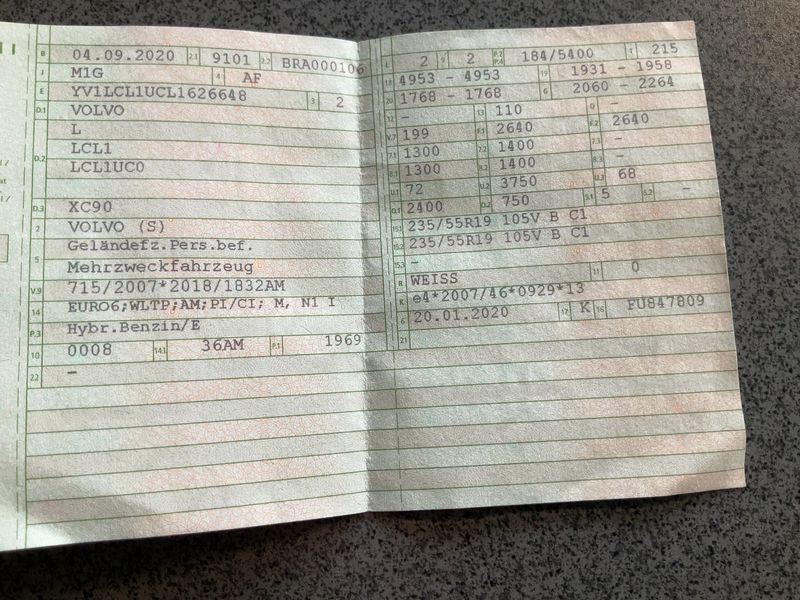 B 04.09.2020 2.1 9101 2.2 BRA000106
J M1G 4 AF
E YV1LCL1UCL1626648 3 2
D.1 VOLVO
L
D.2 LCL1
LCL1UC0
D.3 XC90
2 VOLVO (S)
5 Geländefz.Pers.bef.
Mehrzweckfahrzeug
V.9 715/2007*2018/1832AM
14 EURO6;WLTP;AM;PI/CI; M, N1 I
P.3 Hybr.Benzin/E
10 0008 14.1 36AM P.1 1969
22 –
L 2 9 2 P.2 P.4 184/5400 T 215
18 4953 - 4953 19 1931 - 1958
20 1768 - 1768 G 2060 - 2264
12 - 13 110 Q -
V.7 199 F.1 2640 F.2 2640
7.1 1300 7.2 1400 7.3 -
8.1 1300 8.2 1400 8.3 -
U.1 72 U.2 3750 U.3 68
O.1 2400 O.2 750 S.1 5 S.2 -
15.1 235/55R19 105V B C1
15.2 235/55R19 105V B C1
15.3 -
R WEISS 11 0
K e4*2007/46*0929*13
6 20.01.2020 17 K 16 FU847809
21